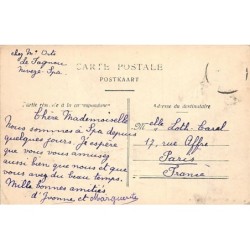 chez Mr Orts
de Sagnou
Nivezé-Spa.
CARTE POSTALE
POSTKAART
Partie réservée à la correspondance
Adresse du destinataire
Chère Mademoiselle
Nous sommes à Spa depuis
quelques jours. J'espère
que vous vous amusez
aussi bien que nous et que
vous avez du beau temps.
Mille bonnes amitiés
d'Yvonne et Marguerite
Melle Loth-Carol
17, rue Affre
Paris
France